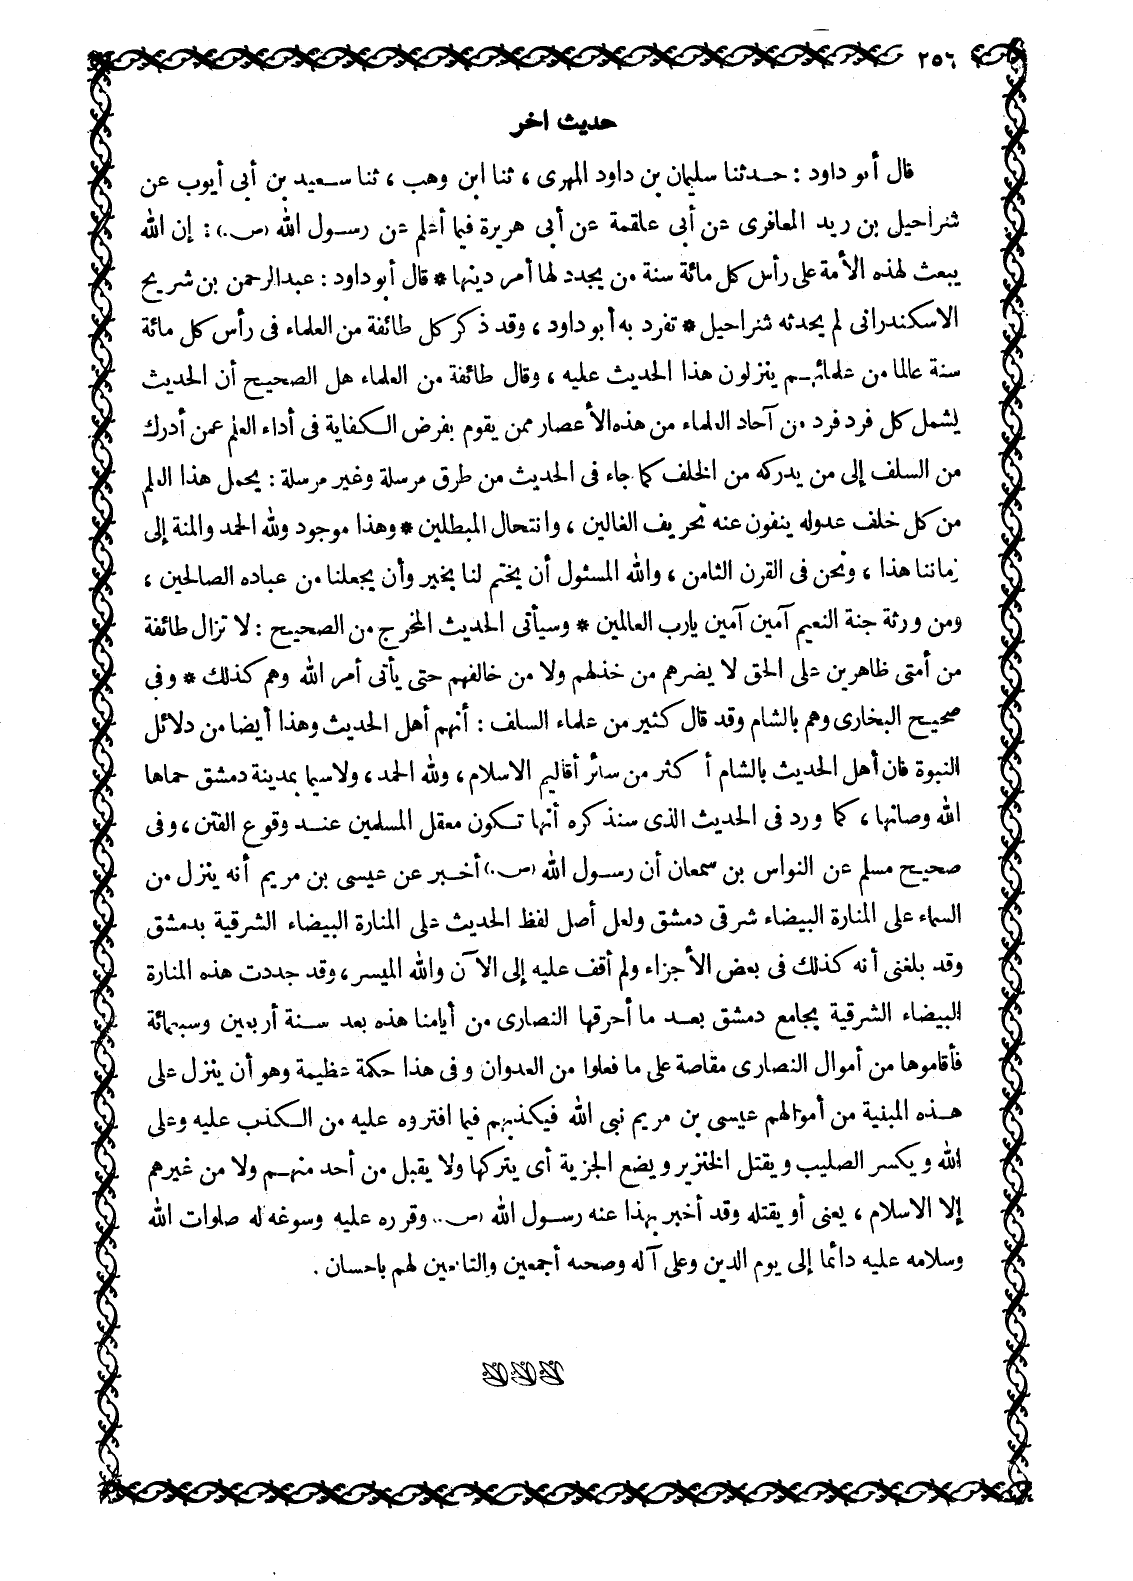 ٢٥٦
حديث اخر
قال أبو داود : حدثنا سليمان بن داود المهرى ، ثنا ابن وهب ، ثنا سعيد بن أبى أيوب عن
شراحيل بن زيد المعافرى عن أبى علقمة عن أبى هريرة فيما أعلم عن رسول الله (ص.) : إن الله
يبعث لهذه الأمة على رأس كل مائة سنة من يجدد لها أمر دينها * قال أبو داود : عبدالرحمن بن شريح
الاسكندرانى لم يحدثه شراحيل * تفرد به أبو داود ، وقد ذكر كل طائفة من العلماء فى رأس كل مائة
سنة عالما من علمائهم ينزلون هذا الحديث عليه ، وقال طائفة من العلماء هل الصحيح أن الحديث
يشمل كل فرد فرد من آحاد العلماء من هذه الأعصار ممن يقوم بفرض الكفاية فى أداء العلم عمن أدرك
من السلف إلى من يدركه من الخلف كما جاء فى الحديث من طرق مرسلة وغير مرسلة : يحمل هذا العلم
من كل خلف عدوله ينفون عنه تحريف الغالين ، وانتحال المبطلين * وهذا موجود ولله الحمد والمنة إلى
زماننا هذا ، ونحن فى القرن الثامن ، والله المسئول أن يختم لنا بخير وأن يجعلنا من عباده الصالحين ،
ومن ورثة جنة النعيم آمين آمين يارب العالمين * وسيأتى الحديث المخرج من الصحيح : لا تزال طائفة
من أمتى ظاهرين على الحق لا يضرهم من خذلهم ولا من خالفهم حتى يأتى أمر الله وهم كذلك * وفى
صحيح البخارى وهم بالشام وقد قال كثير من علماء السلف : أنهم أهل الحديث وهذا أيضا من دلائل
النبوة فان أهل الحديث بالشام أكثر من سائر أقاليم الاسلام ، ولله الحمد ، ولاسيما بمدينة دمشق حماها
الله وصانها ، كما ورد فى الحديث الذى سنذكره أنها تكون معقل المسلمين عند وقوع الفتن ، وفى
صحيح مسلم عن النواس بن سمعان أن رسول الله (ص.) أخبر عن عيسى بن مريم أنه ينزل من
السماء على المنارة البيضاء شرقى دمشق ولعل أصل لفظ الحديث على المنارة البيضاء الشرقية بدمشق
وقد بلغنى أنه كذلك فى بعض الأجزاء ولم أقف عليه إلى الآن والله الميسر ، وقد جددت هذه المنارة
البيضاء الشرقية بجامع دمشق بعد ما أحرقها النصارى من أيامنا هذه بعد سنة أربعين وسبعمائة
فأقاموها من أموال النصارى مقاصة على ما فعلوا من العدوان وفى هذا حكمة عظيمة وهو أن ينزل على
هذه المبنية من أموالهم عيسى بن مريم نبى الله فيكذبهم فيما افتروه عليه من الكذب عليه وعلى
الله ويكسر الصليب ويقتل الخنزير ويضع الجزية أى يتركها ولا يقبل من أحد منهم ولا من غيرهم
إلا الاسلام ، يعنى أو يقتله وقد أخبر بهذا عنه رسول الله (ص.. وقرره عليه وسوغه له صلوات الله
وسلامه عليه دائما إلى يوم الدين وعلى آله وصحبه أجمعين والتابعين لهم باحسان .